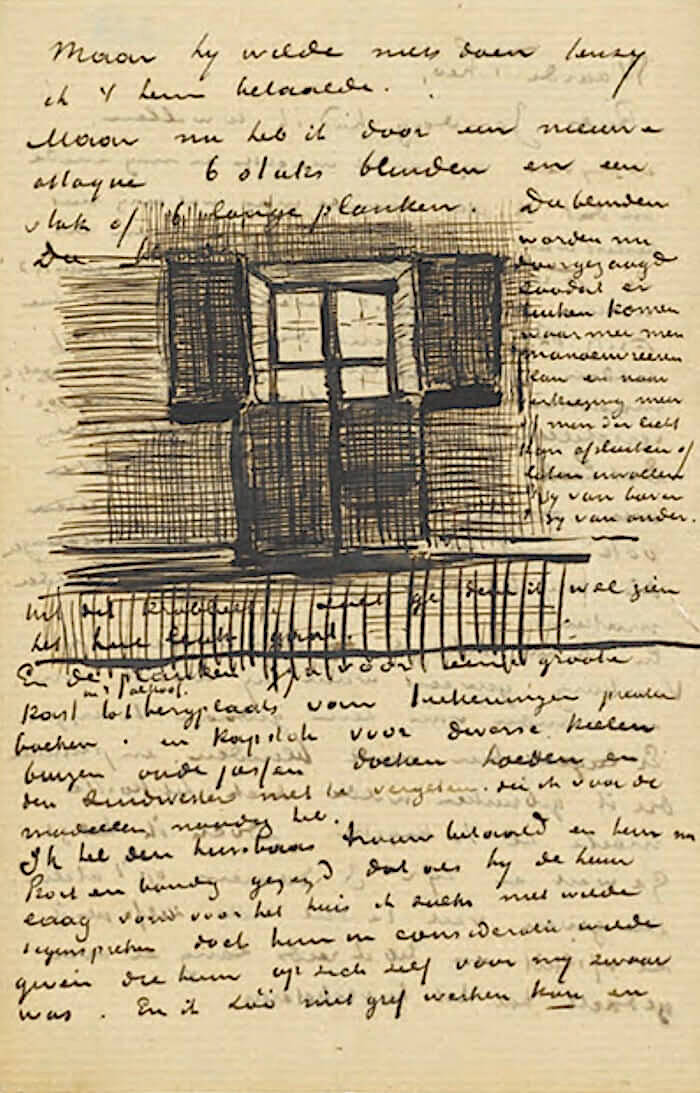 Maar hy wilde niets doen tenzy
ik 't hem betaalde.
Maar nu heb ik door een nieuwe
attaque 6 stuks blinden en een
stuk of 6 lange planken.
Die
Die blinden
worden nu
doorgezaagd
zoodat er
luiken komen
waarmee men
manoeuvreeren
kan en naar
verkiezing meer
of minder licht
kan afsluiten of
laten invallen
't zy van boven
't zy van onder.
Uit dit zult ge denk ik wel zien
het heel leuk gaat.
En de planken zyn voor eene groote
in 't alkoof
kast tot bergplaats voor teekeningen prenten
boeken. en kapstok voor diverse kielen
buizen oude jassen doeken hoeden en
den Zuidwester niet te vergeten. die ik voor de
modellen noodig heb.
Ik heb den huisbaas trouw betaald en hem nu
kort en bondig gezegd dat als hy de huur
laag vond voor het huis ik zulks niet wilde
tegenspreken doch hem in consideratie wilde
geven die huur op zich zelf voor my zwaar
was. En ik zóó niet gref werken kon en